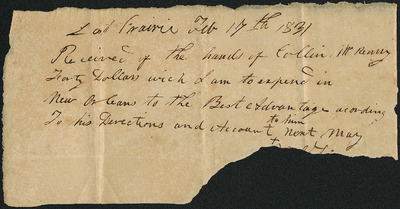 Lost Prairie Feb 17th 1831
Received of the hands of Collin McKenny
Forty Dollars wich I am to expend in
New Orleans to the Best Advantage acording
to him
To his Directions and Account next May